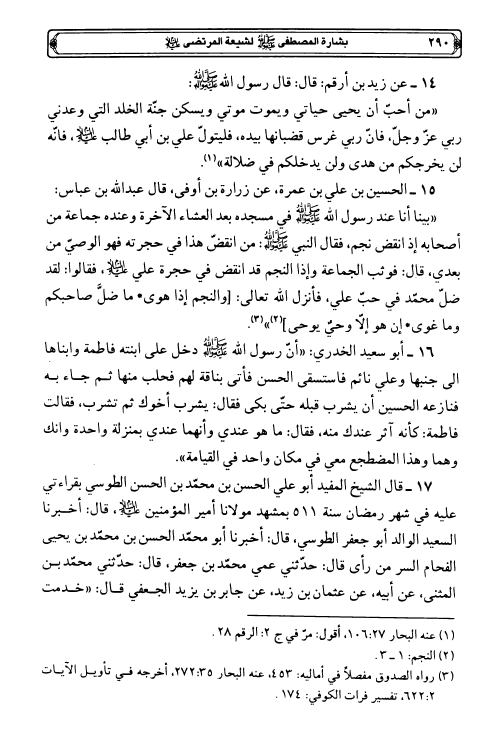 ٢٩٠ بشارة المصطفى ﷺ لشيعة المرتضى عليه السلام
١٤ ـ عن زيد بن أرقم: قال: قال رسول الله ﷺ:
«من أحبّ أن يحيى حياتي ويموت موتي ويسكن جنّة الخلد التي وعدني
ربي عزّ وجلّ، فانّ ربي غرس قضبانها بيده، فليتولّ علي بن أبي طالب عليه السلام، فانّه
لن يخرجكم من هدى ولن يدخلكم في ضلالة»(١).
١٥ ـ الحسين بن علي بن عمرة، عن زرارة بن أوفى، قال عبدالله بن عباس:
«بينا أنا عند رسول الله ﷺ في مسجده بعد العشاء الآخرة وعنده جماعة من
أصحابه إذ انقض نجم، فقال النبي ﷺ: من انقضّ هذا في حجرته فهو الوصيّ من
بعدي، قال: فوثب الجماعة وإذا النجم قد انقض في حجرة علي عليه السلام، فقالوا: لقد
ضلّ محمّد في حبّ علي، فأنزل الله تعالى: [والنجم إذا هوى * ما ضلَّ صاحبكم
وما غوى * إن هو إلّا وحيٌ يوحى](٢)»(٣).
١٦ ـ أبو سعيد الخدري: «أنّ رسول الله ﷺ دخل على ابنته فاطمة وابناها
الى جنبها وعلي نائم فاستسقى الحسن فأتى بناقة لهم فحلب منها ثم جاء به
فنازعه الحسين أن يشرب قبله حتّى بكى فقال: يشرب أخوك ثم تشرب، فقالت
فاطمة: كأنه آثر عندك منه، فقال: ما هو عندي وأنهما عندي بمنزلة واحدة وانك
وهما وهذا المضطجع معي في مكان واحد في القيامة».
١٧ ـ قال الشيخ المفيد أبو علي الحسن بن محمّد بن الحسن الطوسي بقراءتي
عليه في شهر رمضان سنة ٥١١ بمشهد مولانا أمير المؤمنين عليه السلام، قال: أخبرنا
السعيد الوالد أبو جعفر الطوسي، قال: أخبرنا أبو محمّد الحسن بن محمّد بن يحيى
الفحام السر من رأى قال: حدّثني عمي محمّد بن جعفر، قال: حدّثني محمّد بن
المثنى، عن أبيه، عن عثمان بن زيد، عن جابر بن يزيد الجعفي قال: «خدمت
(١) عنه البحار ١٠٦:٢٧، أقول: مرّ في ج ٢: الرقم ٢٨.
(٢) النجم: ١ ـ ٣.
(٣) رواه الصدوق مفصلاً في أماليه: ٤٥٣، عنه البحار ٢٧٢:٣٥، أخرجه في تأويل الآيات
٦٢٢:٢، تفسير فرات الكوفي: ١٧٤.